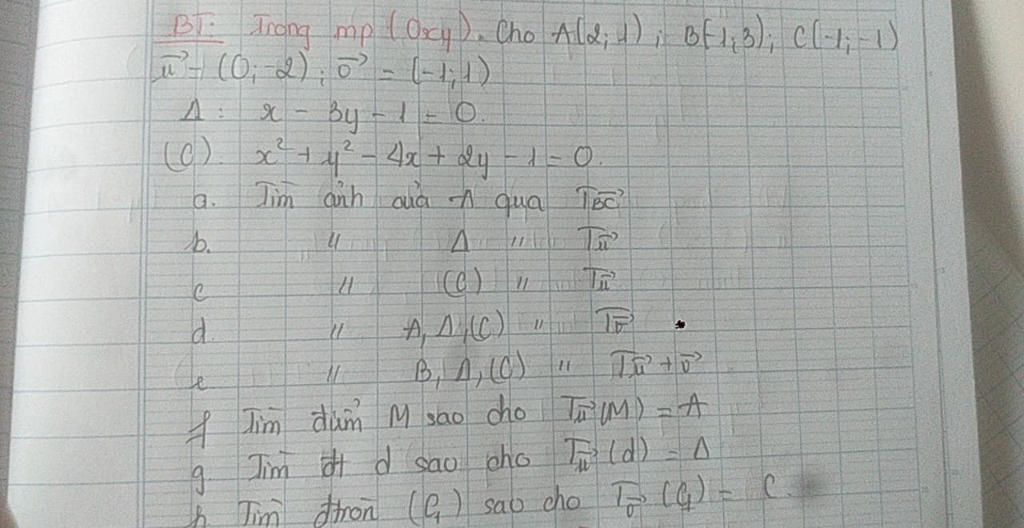 BT: Trong mp (Oxy). Cho A(2; 1); B(-1; 3); C(-1; -1)
u⃗ = (0; -2); v⃗ = (-1; 1)
Δ : x - 3y - 1 = 0.
(C). x² + y² - 4x + 2y - 1 = 0.
a. Tìm ảnh của A qua T_BC⃗
b. " Δ " T_u⃗
c " (C) " T_u⃗
d. " A, Δ, (C) " T_v⃗
e " B, Δ, (C) " T_u⃗ + v⃗
f Tìm điểm M sao cho T_u⃗ (M) = A
g. Tìm đt d sao cho T_u⃗ (d) = Δ
h Tìm đtròn (C₁) sao cho T_v⃗ (C₁) = C.